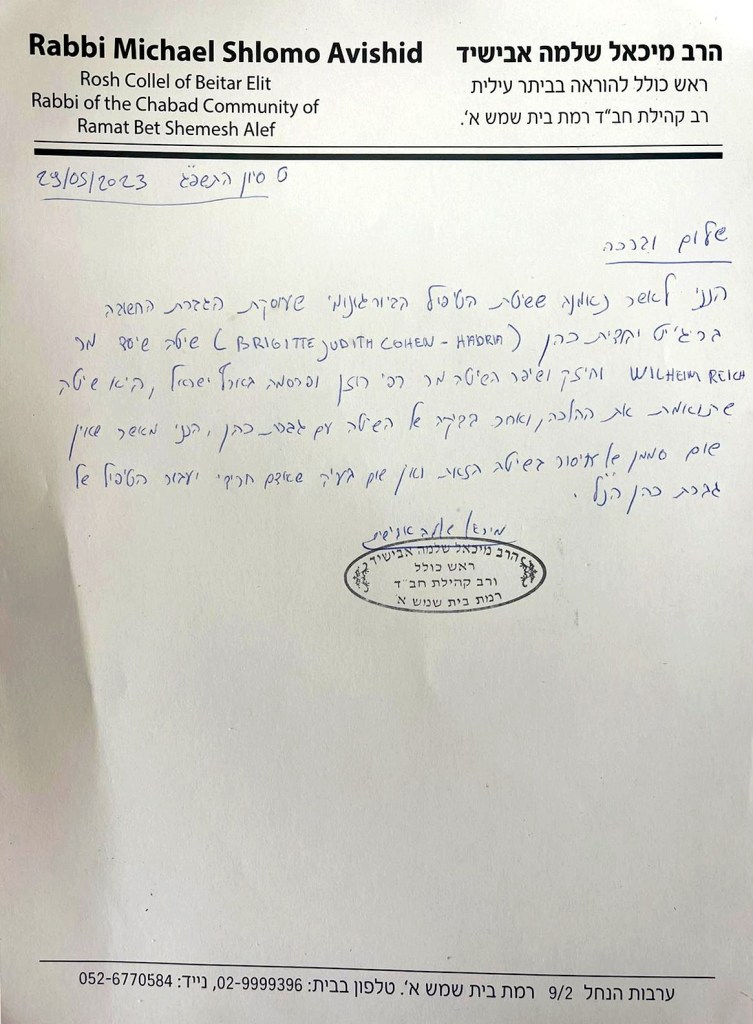 Rabbi Michael Shlomo Avishid
Rosh Collel of Beitar Elit
Rabbi of the Chabad Community of
Ramat Bet Shemesh Alef
הרב מיכאל שלמה אבישיד
ראש כולל להוראה בביתר עילית
רב קהילת חב"ד רמת בית שמש א'.
ט סיון התשפ"ג 29/05/2023
שלום וברכה
הנני לאשר נאמנה ששיטת הטיפול הביורגונומי שעוסקת הגברת החשובה
בריג'יט יהודית כהן (BRIGITTE JUDITH COHEN - HADRIA) שיטה שיסד מר
WILHEIM REICH וחיזק ושיפר השיטה מר רפי רוזן ופרסמה בארץ ישראל, היא שיטה
שתואמת את ההלכה, ואחר בדיקה של השיטה עם גברת כהן, הנני מאשר שאין
שום סממן של איסור בשיטה הזאת ואין שום בעיה שאדם חרדי יעבור הטיפול של
גברת כהן הנ"ל.
מיכאל שלמה אבישיד
הרב מיכאל שלמה אבישיד
ראש כולל
ורב קהילת חב"ד
רמת בית שמש א'
ערבות הנחל 9/2 רמת בית שמש א'. טלפון בבית: 02-9999396, נייד: 052-6770584